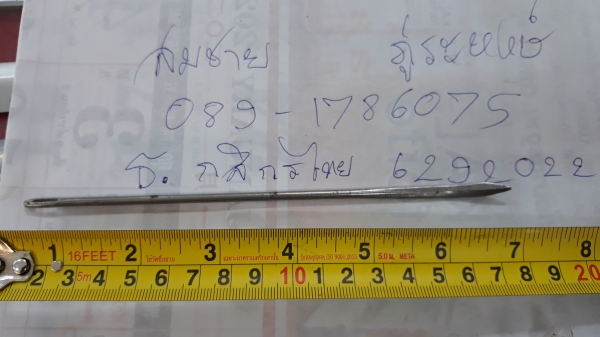 สมชาย
089-1786075
ธ. กสิกรไทย 6292022
16FEET 2 3 4 5 6 7 8
5.0 M. META
2 3 5m 4 5 6 7 8 9 10 1 2 3 4 5 6 7 8 9 20